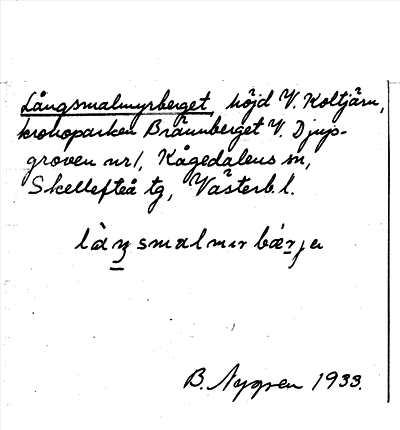 Långsmalmyrberget, höjd V. Koltjärn,
kronoparken Brännberget V. Djup-
groven nr 1, Kågedalens sn,
Skellefteå tg, Västerb l.
B. Nygren 1933.